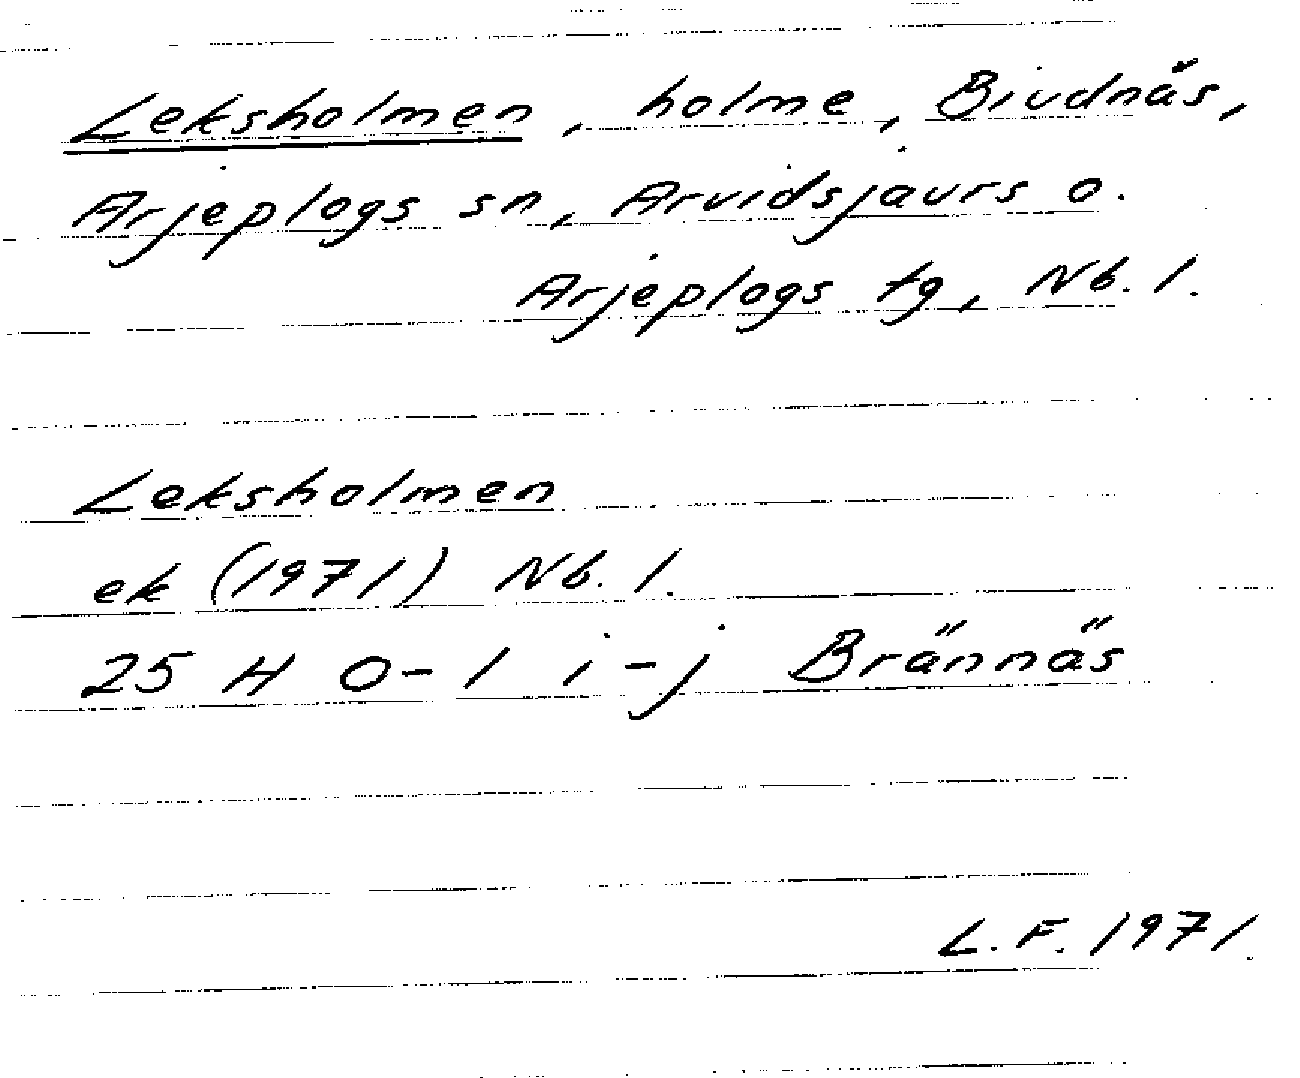 Leksholmen, holme, Bivdnäs,
Arjeplogs sn, Arvidsjaurs o.
Arjeplogs tg, Nb. l.
Leksholmen
ek (1971) Nb. l.
25 H 0-1 i-j Brännäs
L. F. 1971.